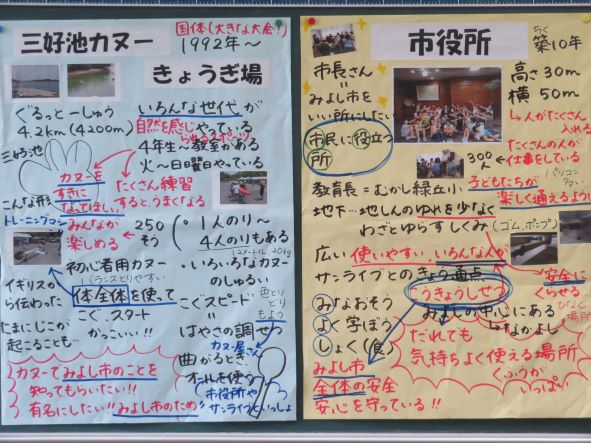 三好池カヌー
きょうぎ場
国体(大きな大会!)
1992年～
ぐるっとーしゅう
4.2km(4200m)
三好池
こんな形
トレーニングマシン
いろんな世代が
自然を感じやっている
られるスポーツ
4年生～教室がある
火～日曜日やっている
カヌーを
すきに
なってほしい
たくさん練習
するとうまくなる
みんなが
楽しめる
250
そう
1人のり～
4人のりもある
12メートル,20kg
初心者用カヌー
バランスとりやすい
いろいろなカヌー
のしゅるい
色とり
どり
もよう
イギリス
から伝わった
体全体を使って
こぐ、スタート
かっこいい!!
たまにじこが
起こることも
こぐスピード
はやさの調せつ
カヌー屋さん
曲がるとき
オールを使う
市役所や
サンライブといっしょ
カヌーでみよし市のことを
知ってもらいたい!!
有名にしたい!!みよし市のため
市役所
ちく
築10年
市長さん
=
みよし市を
いい所にしたい
市民に役立つ
所
高さ30m
横50m
人がたくさん
入れる
300人
たくさんの人が
仕事をしている
パソコン
教育長=むかし緑丘小
子どもたちが
楽しく通えるように
地下…地しんのゆれを少なく
わざとゆらすしくみ
(ゴム,ポンプ)
広い 使いやすい,いろんな人が
サンライブとのきょう通点
こうきょうしせつ
安全に
くらせる
みなおそう
よく学ぼう
しょく(食)
みよしの中心にある
なかよし
ひなん
場所
だれでも
気持ちよく使える場所
くふうが
いっぱい
みよし市
全体の安全
安心を守っている!!